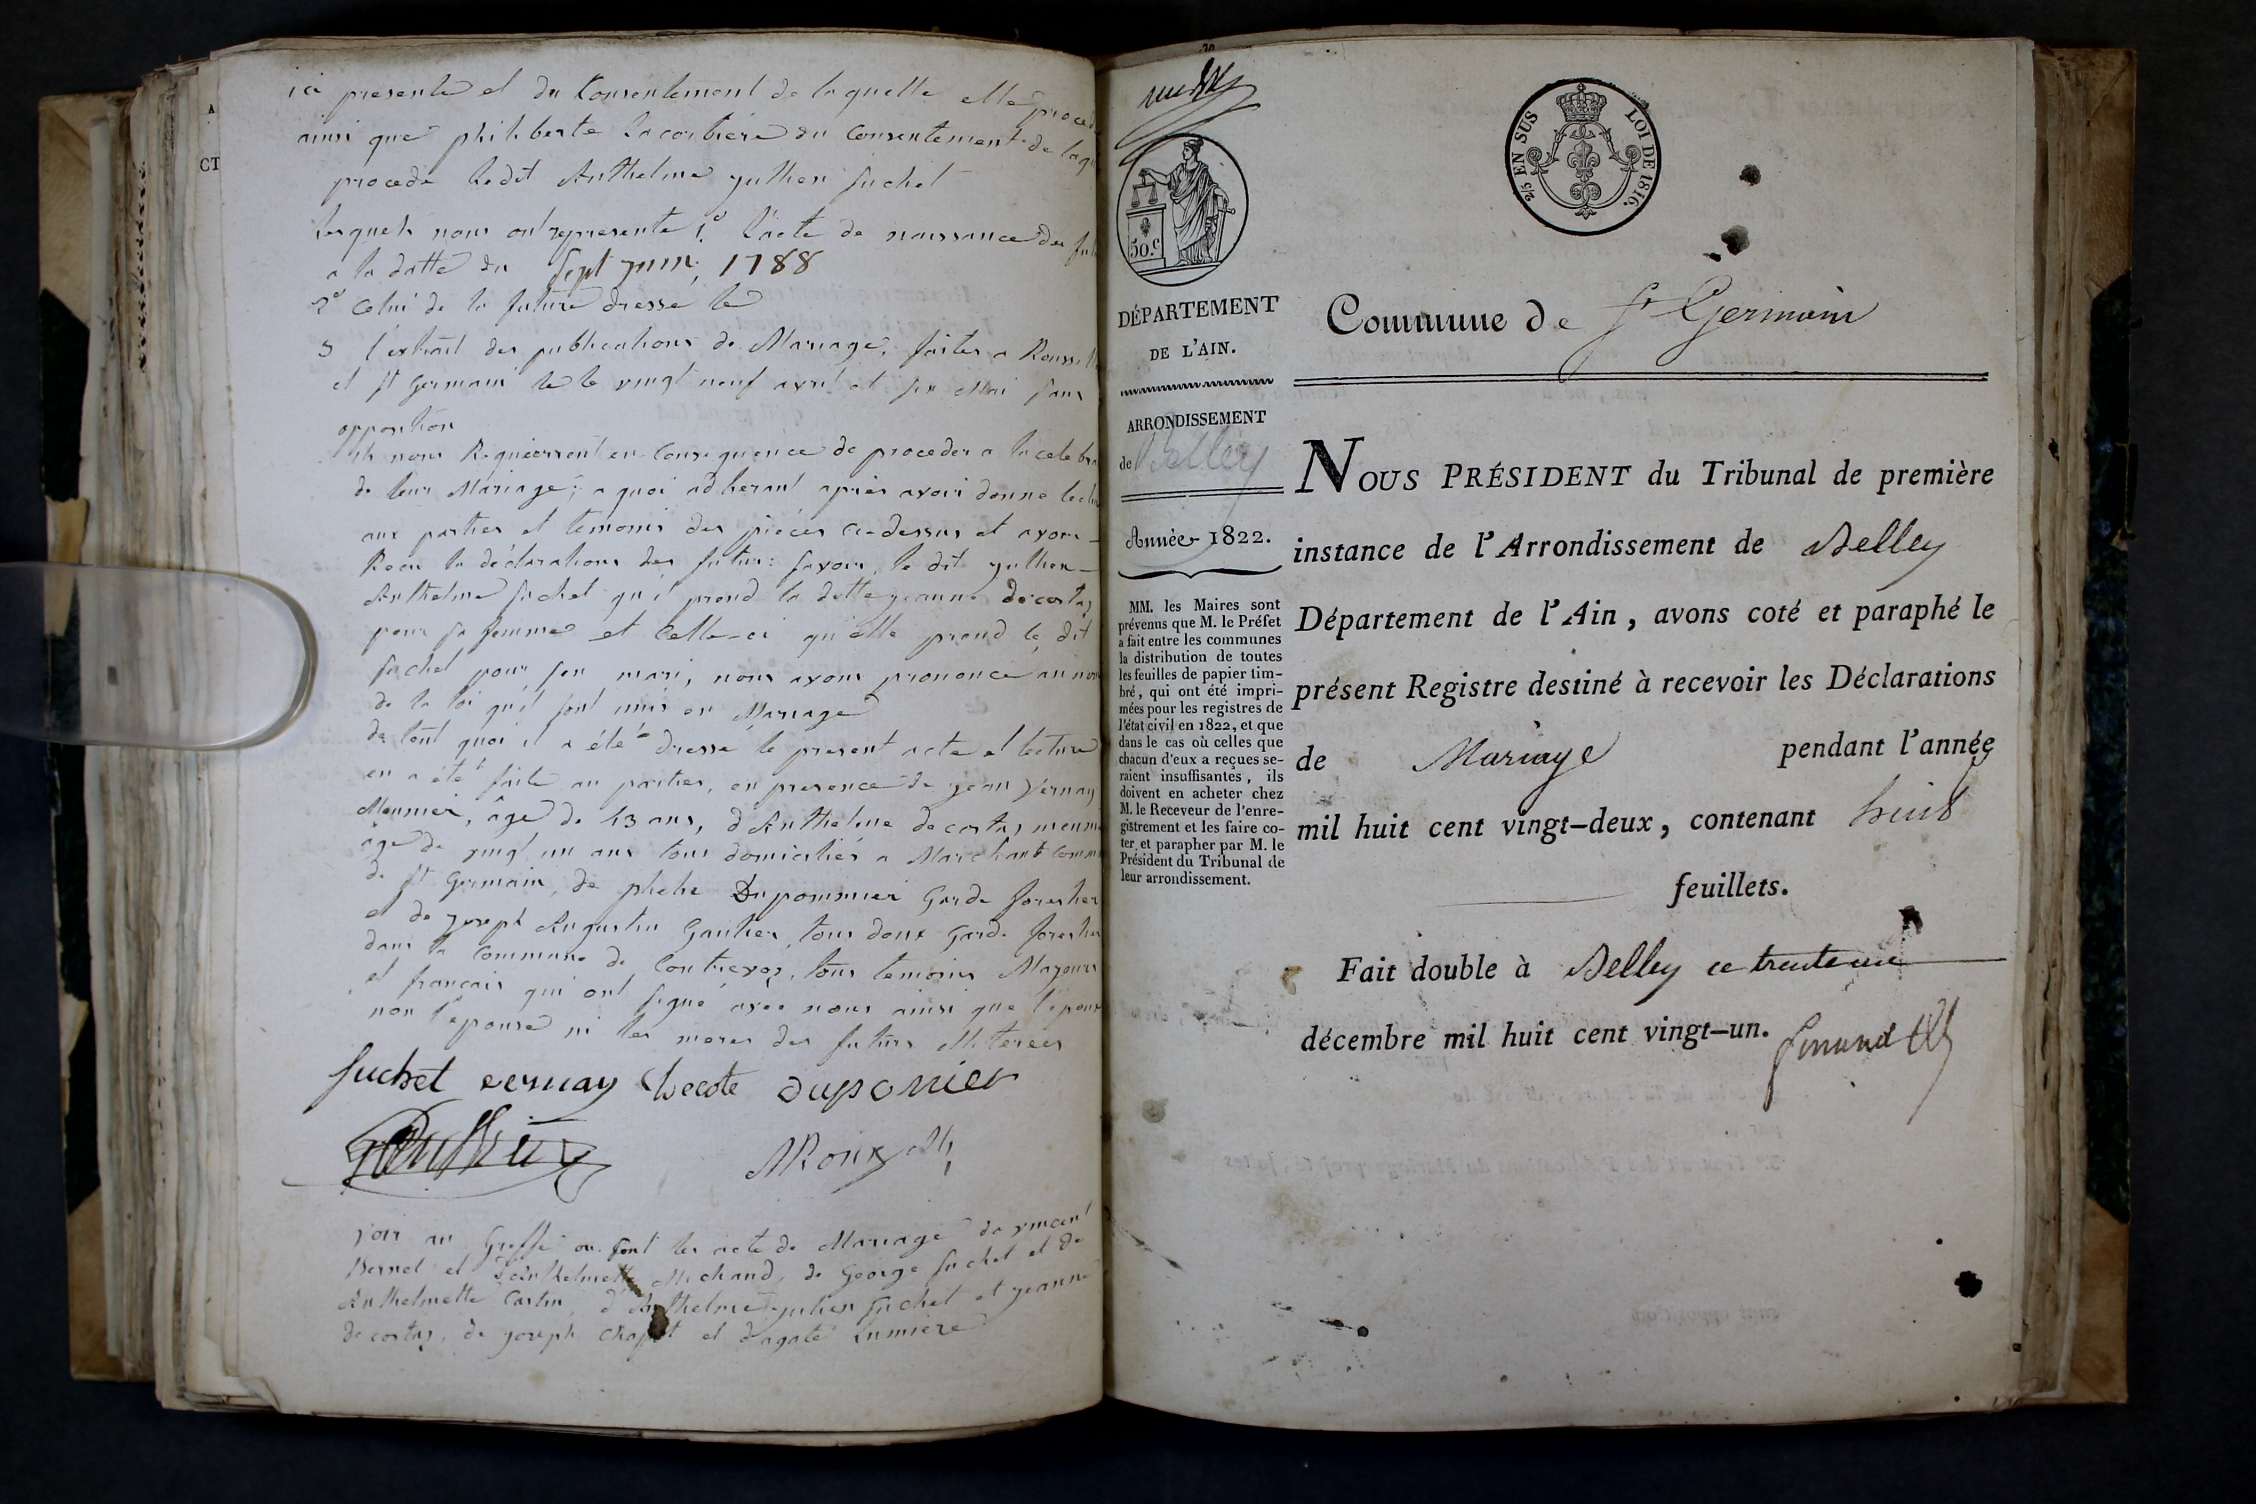 ici presente et du Consentement de laquelle elle procede
ainsi que philiberte Lacorbiere du Consentement de laqu
procede ledit Anthelme jullien Suchet
Lesquels nous ont representé 1.º l'acte de naissance du fut
a la datte du Sept juin 1788
2º Celui de la future dressé le
3 l'extrait des publications de Mariage, faites a Roussil
et St Germain le le vingt neuf avril et six Mai sans
opposition
ils nous Requierrent en Consequence de proceder a la celebra
de leur Mariage; a quoi adherant aprés avoir donné lectu
aux parties et temoins des piéces ci-dessus et avons
Recu la déclarations des futurs: savoir, le dit jullien
Anthelme Suchet qu'il prend la ditte jeanne decostaz
pour sa femme et Celle-ci qu'elle prend le dit
Suchet pour son mari, nous avons prononcé au nom
de la loi qu'il sont unis en Mariage
de tout quoi il a été dressé le present acte et lecture
en a été faite au parties, en presence de jean Vernay
Meunier, âgé de 43 ans, d'Anthelme decostaz meunie
âgé de vingt un ans tous domiciliés a Marchant Commu
de St Germain, de Dupommier Garde forestier
et de joseph Augustin Gautier, tous deux Garde forestier
dans la Commune de Contrevoz, tous temoins Majeurs
et francais qui ont signé avec nous ainsi que l'epoux
non l'epouse ni les meres des futurs Illeterees
Suchet vernay decote duponier
MRoux
voir au Greffe ou sont les acte de Mariage de vincent
Bernel et d'Anthelmette Michaud, de George Suchet et de
Anthelmette Castin, d'Anthelme julien Suchet et jeanne
decostaz, de joseph Chapot et d'agate Lumiere
2/5 EN SUS
LOI DE 1816.
50.c
DÉPARTEMENT
DE L'AIN.
ARRONDISSEMENT
de Belley
Année 1822.
MM. les Maires sont
prévenus que M. le Préfet
a fait entre les communes
la distribution de toutes
les feuilles de papier tim-
bré, qui ont été impri-
mées pour les registres de
l'état civil en 1822, et que
dans le cas où celles que
chacun d'eux a reçues se-
raient insuffisantes, ils
doivent en acheter chez
M. le Receveur de l'enre-
gistrement et les faire co-
ter et parapher par M. le
Président du Tribunal de
leur arrondissement.
Commune de St Germain
NOUS PRÉSIDENT du Tribunal de première
instance de l'Arrondissement de Belley
Département de l'Ain, avons coté et paraphé le
présent Registre destiné à recevoir les Déclarations
de Mariage pendant l'année
mil huit cent vingt-deux, contenant huit
feuillets.
Fait double à Belley ce trente un
décembre mil huit cent vingt-un.